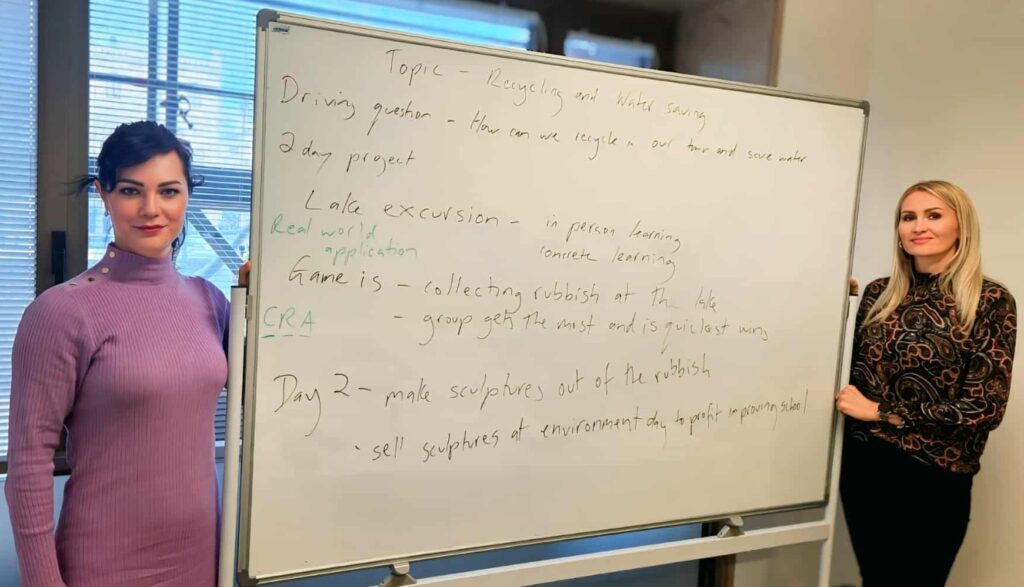 Topic - Recycling and Water saving
Driving question - How can we recycle in our town and save water
2 day project
Lake excursion - in person learning
concrete learning
Real world
application
Game is - collecting rubbish at the lake
- group gets the most and is quickest wins
CRA
Day 2 - make sculptures out of the rubbish
· sell sculptures at environment day to profit improving school